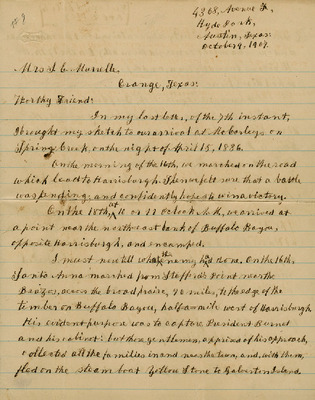 4368, Avenue F,
Hyde Park,
Austin, Texas
October 9, 1907.
Mrs. L. C. Murrelle.
Orange, Texas:
Worthy Friend:
In my last letter, of the 7th instant,
I brought my sketch to our arrival at McCarleys on
Spring Creek on the night of April 15, 1836.
On the morning of the 16th, we marched on the road
which lead to Harrisburgh. I then we felt sure that a battle
was pending; and confidently hoped to win a victory.
On the 18th, at 10 or 11 O'clock A.M., we arrived at
a point near the north east bank of Buffalo Bayou,
opposite Harrisburgh, and encamped.
I must now tell what the enemy had done. On the 16th,
Santa Anna marched from Stafford's Point near the
Brazos, across the broad prairie, 20 miles, to the edge of the
timber on Buffalo Bayou, half a mile west of Harrisburgh
His evident purpose was to capture President Burnet
and his cabinet: but these gentlemen, apprized of his approach,
collected all the families in and near the town, and, with them,
fled on the steam boat Yellow Stone to Galveston Island